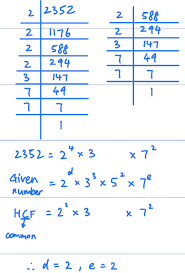 2 2352
2 1176
2 588
2 294
3 147
7 49
7 7
1
2 588
2 294
3 147
7 49
7 7
1
2352 = 2⁴ × 3 × 7²
Given number = 2ᵈ × 3³ × 5² × 7ᵉ
HCF = 2² × 3 × 7²
common
∴ d = 2 , e = 2